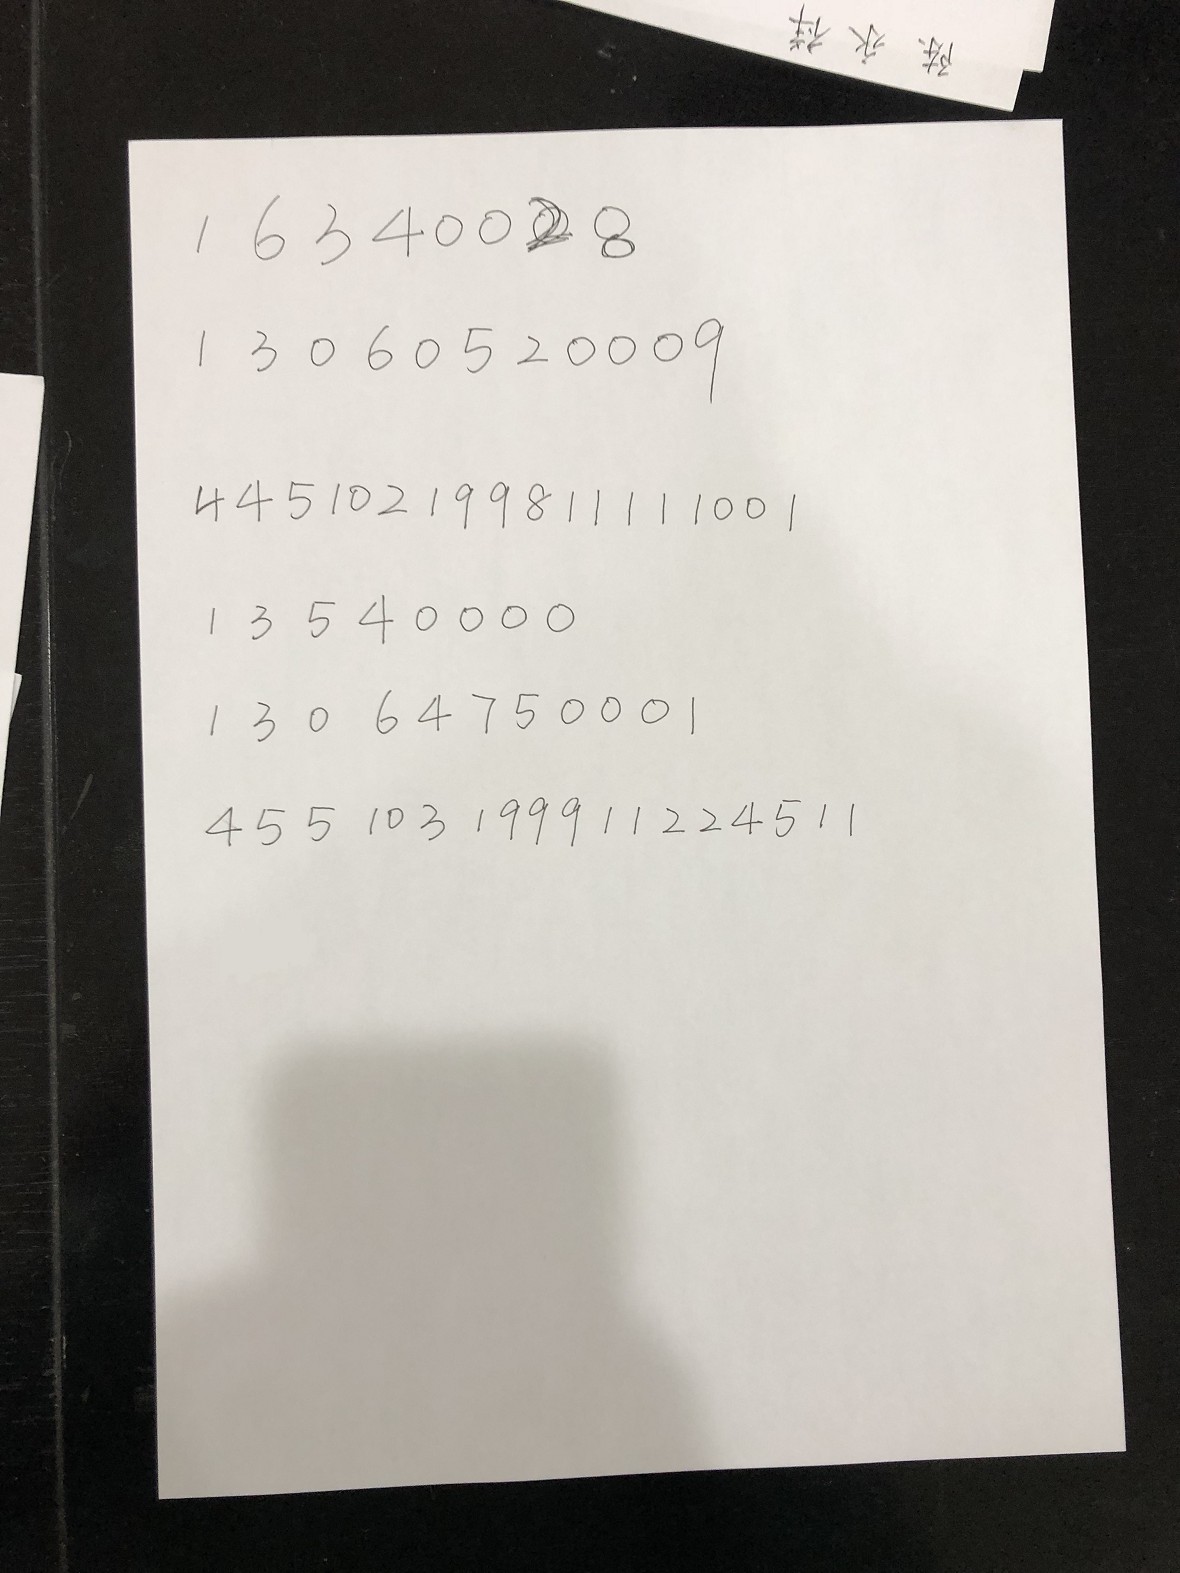 陈永祥
16340028
13060520009
445102199811111001
13540000
13064750001
455103199911224511